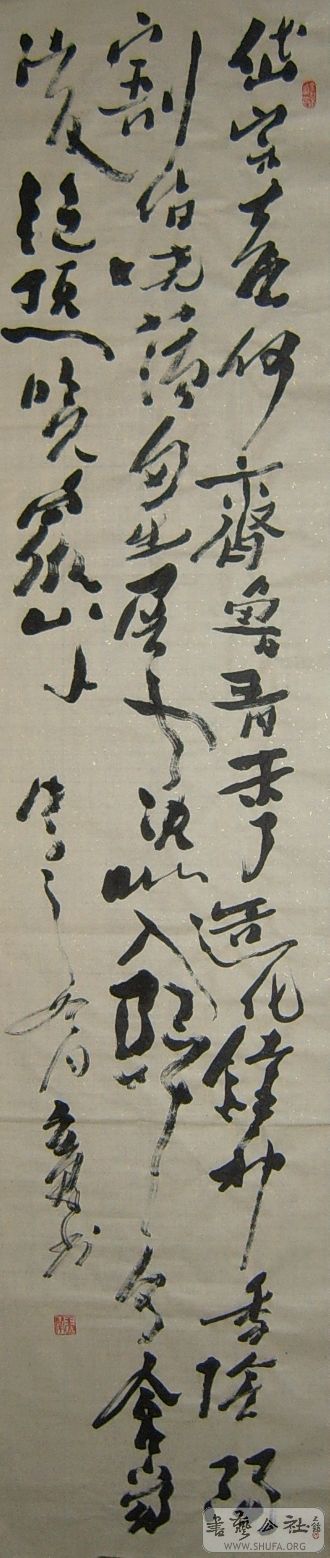 岱宗夫如何齊魯青未了造化鍾神秀陰陽
割昏曉蕩胸生層雲決眦入歸鳥會當
凌絕頂一覽衆山小
書
書藝公社
WWW.SHUFA.ORG